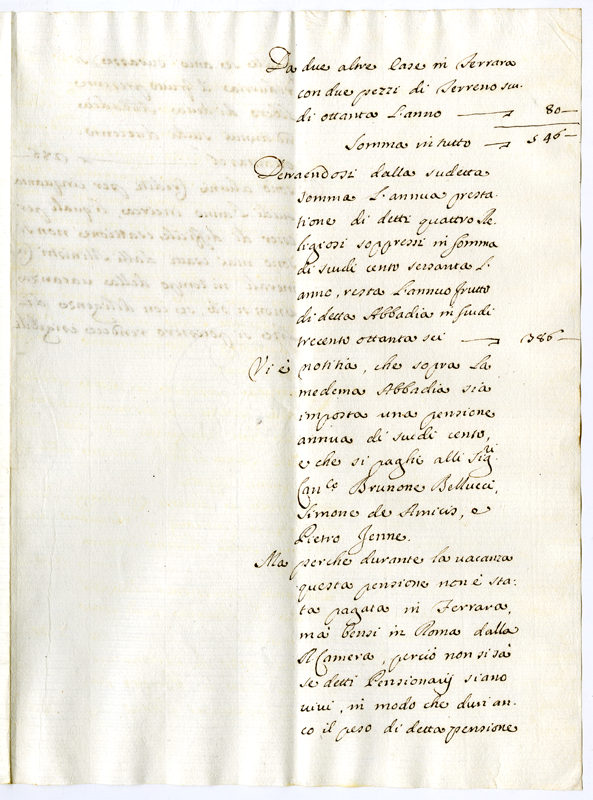 Da due altre Case in Ferrara
con due pezzi di Terreno scu:
di ottanta l'anno — 80 —
Somma in tutto — 546 —
Detraendosi dalla sudetta
somma l'annua presta:
tione di detti quattro Re:
ligiosi soppressi in somma
di scudi cento sessanta l'
anno, resta l'annuo frutto
di detta Abbadia in scudi
trecento ottanta sei — 386 —
Vi è notitia, che sopra la
medema Abbadia sia
imposta una pensione
annua di scudi cento,
e che si paghi alli Sigri
Canco Brunone Bellucci,
Simone de Amicis, e
Pietro Jenne.
Ma perche durante la vacanza
questa pensione non è sta:
ta pagata in Ferrara,
mà bensi in Roma dalla
R Camera, perciò non si sà
se detti Pensionarij siano
vivi, in modo che duri an:
co il peso di detta pensione